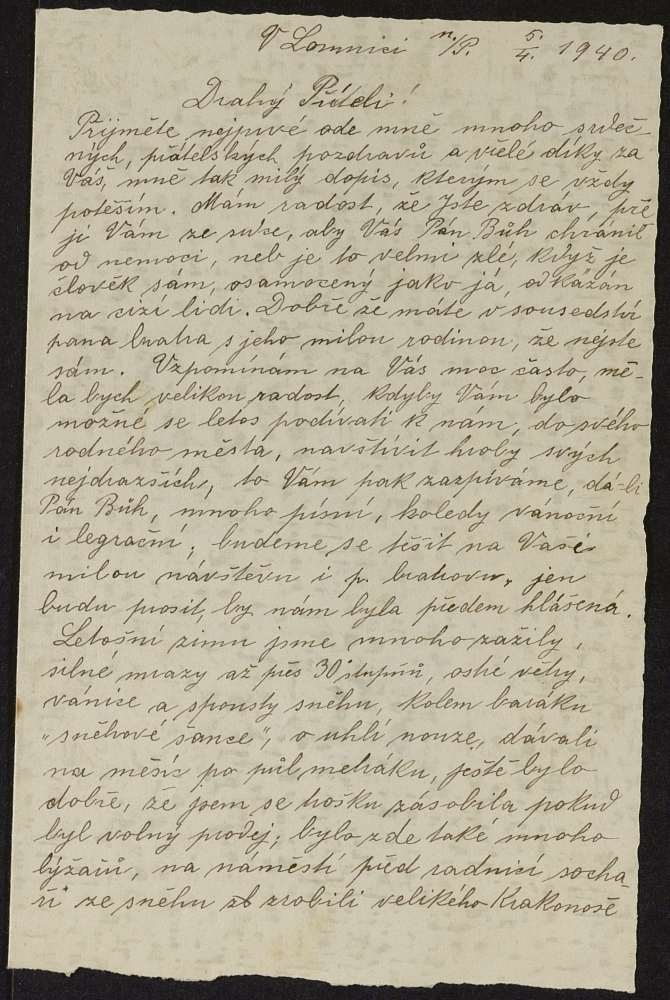 V Lomnici n./P. 5./4. 1940.
Drahý Příteli!
Přijměte nejprvé ode mně mnoho srdeč-
ných, přátelských pozdravů a vřelé díky za
Váš, mně tak milý dopis, kterým se vždy
potěším. Mám radost, že Jste zdráv, pře
ji Vám ze srdce, aby Vás Pán Bůh chránil
od nemoci, neb je to velmi zlé, když je
člověk sám, osamocený jako já, odkázán
na cizí lidi. Dobře že máte v sousedství
pana bratra s jeho milou rodinou, že nejste
sám. Vzpomínám na Vás moc často, mě-
la bych velikou radost, kdyby Vám bylo
možné se letos podívati k nám, do svého
rodného města, navštívit hroby svých
nejdražších, to Vám pak zazpíváme, dá-li
Pán Bůh, mnoho písní, koledy vánoční
i legrační, budeme se těšit na Vaši
milou návštěvu i p. bratrovu, jen
budu prosit, by nám byla předem hlášená.
Letošní zimu jsme mnoho zažily,
silné mrazy až přes 30 stupňů, ostré větry,
vánice a spousty sněhu, kolem baráku
„sněhové šance", o uhlí nouze, dávali
na měsíc po půl metráku, ještě bylo
dobře, že jsem se trošku zásobila pokud
byl volný prodej; bylo zde také mnoho
lyžařů, na náměstí před radnicí socha-
ři ze sněhu zrobili velikého Krakonoše